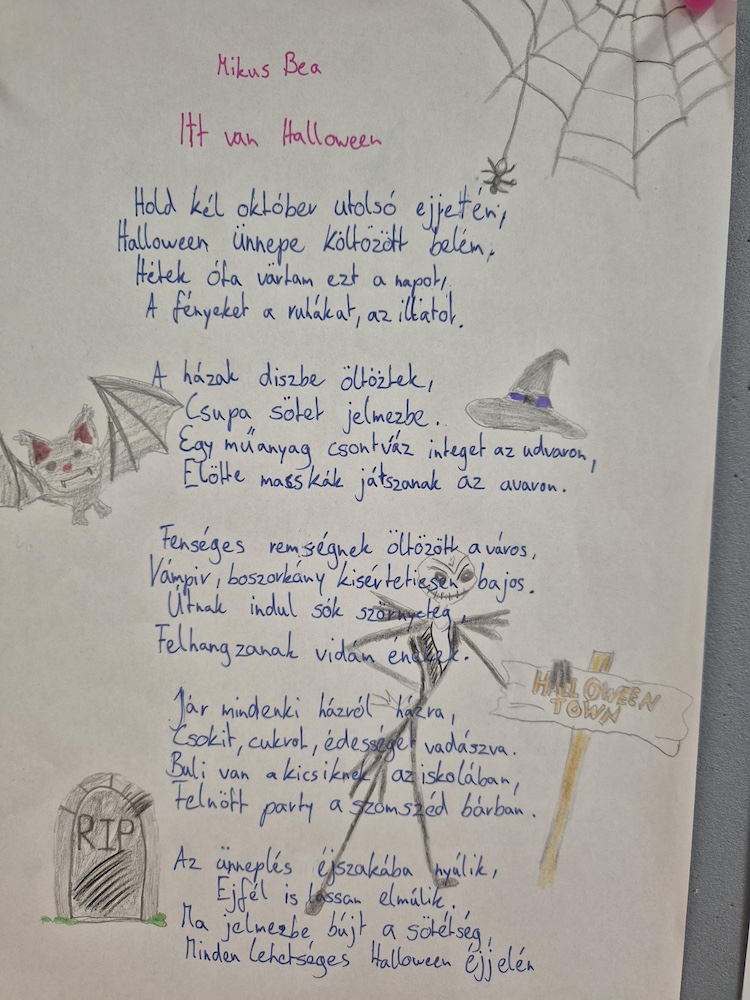 Mikus Bea
Itt van Halloween
Hold kél október utolsó ejjelén,
Halloween ünnepe költözött belém,
Hétek óta vártam ezt a napot,
A fényeket a ruhákat, az illatot.
A házak diszbe öltöztek,
Csupa sötet jelmezbe.
Egy műanyag csontváz integet az udvaron,
Elötte masskák játszanak az avaron.
Fenséges remségnek öltözött a város,
Vámpir, boszorkány kisértetiesen bajos.
Útnak indul sók szörnyeteg,
Felhangzanak vidán énekek.
Jár mindenki házról házra,
Csokit, cukrot, édességet vadászva.
Buli van a kicsiknek az iskolában,
Felnőtt party a szomszéd bárban.
Az ünneplés éjszakába nyúlik,
Ejfél is lassan elmúlik.
Ma jelmezbe bújt a sötétség,
Minden lehetséges Halloween éjjelén
HALLOWEEN
TOWN
RIP